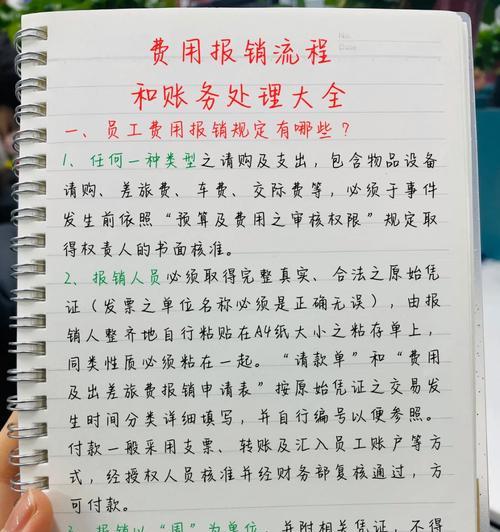 No.
Date
费用报销流程
和账务处理大全
一、员工费用报销规定有哪些？
1、任何一种类型之请购及支出，包含物品设备
请购、差旅费、车费、交际费等，必须于事件
发生前依照“预算及费用之审核权限”规定取
得权责人的书面核准。
2、报销人员必须取得完整真实、合法之原始凭
证（发票之单位名称必须是正确无误），由报
销人整齐地自行粘贴在A4纸大小之粘存单上，
同类性质必须粘在一起。“请款单”和“费用
及出差旅费报销申请表”按原始凭证之交易发
生时间分类详细填写，并自行编号以便参照。
付款一般采用支票、转账及汇入员工账户等方
式，经授权人员核准并经财务部复核通过，方
可付款。
3、报销以“周”为单位，并附相关凭证，不得